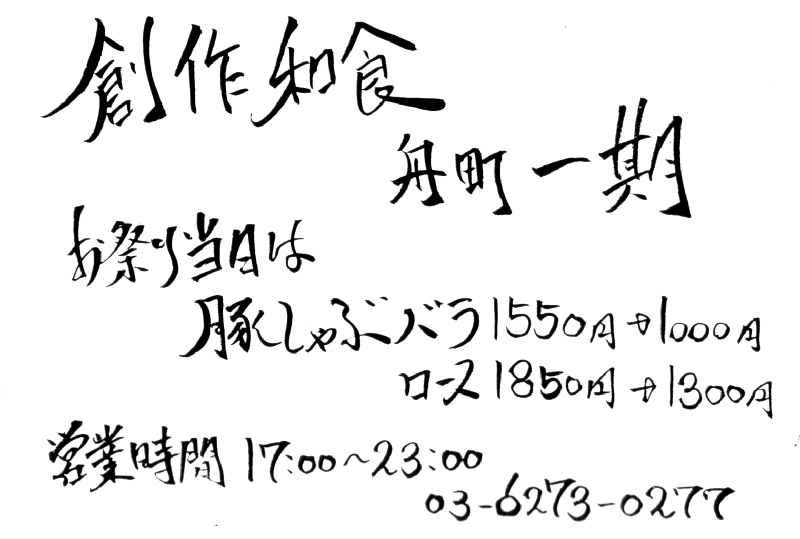 創作和食
舟町 一期
お祭り当日は
豚しゃぶ バラ 1550円→1000円
ロース 1850円→1300円
営業時間 17:00~23:00
03-6273-0277